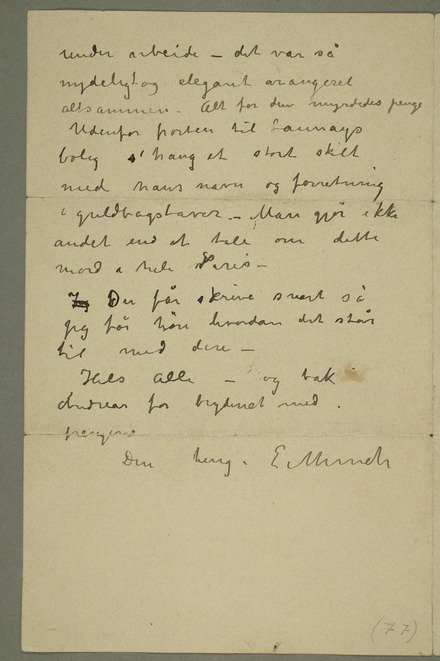 under arbeide – det var så
nydeligt og elegant arangeret
altsammen – Alt for den myrdedes penge
Udenfor porten til Launays
bolig hang et stort skilt
med hans navn og forretning
i guldbogstaver – Man gjør ikke
andet end at tale om dette
mord i hele Paris –
Du får skrive snart så
jeg får høre hvordan det står
til med dere –
Hils alle – og tak
Andreas for bryderiet med
pengene
Din heng. E. Munch
(77)